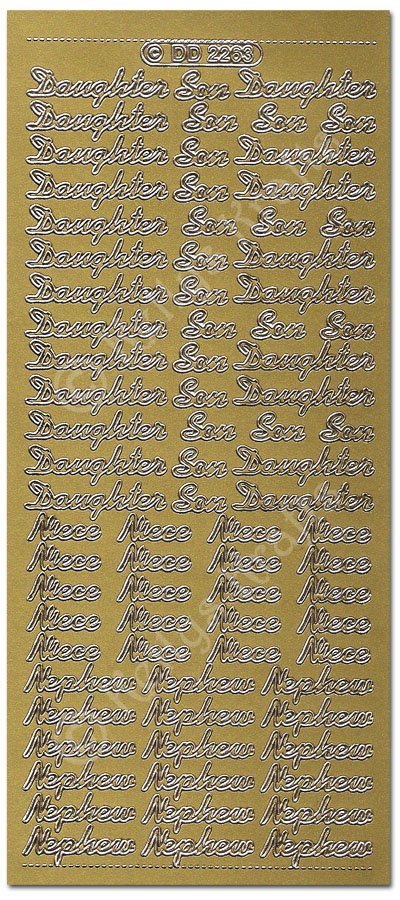 © DD 2263
Daughter Son Daughter
Daughter Son Son Son
Daughter Son Daughter
Daughter Son Daughter
Daughter Son Son Son
Daughter Son Daughter
Daughter Son Daughter
Daughter Son Son Son
Daughter Son Daughter
Daughter Son Daughter
Daughter Son Son Son
Daughter Son Daughter
Daughter Son Daughter
Niece Niece Niece Niece
Niece Niece Niece Niece
Niece Niece Niece Niece
Niece Niece Niece Niece
Niece Niece Niece Niece
Nephew Nephew Nephew
Nephew Nephew Nephew
Nephew Nephew Nephew
Nephew Nephew Nephew
Nephew Nephew Nephew
Nephew Nephew Nephew